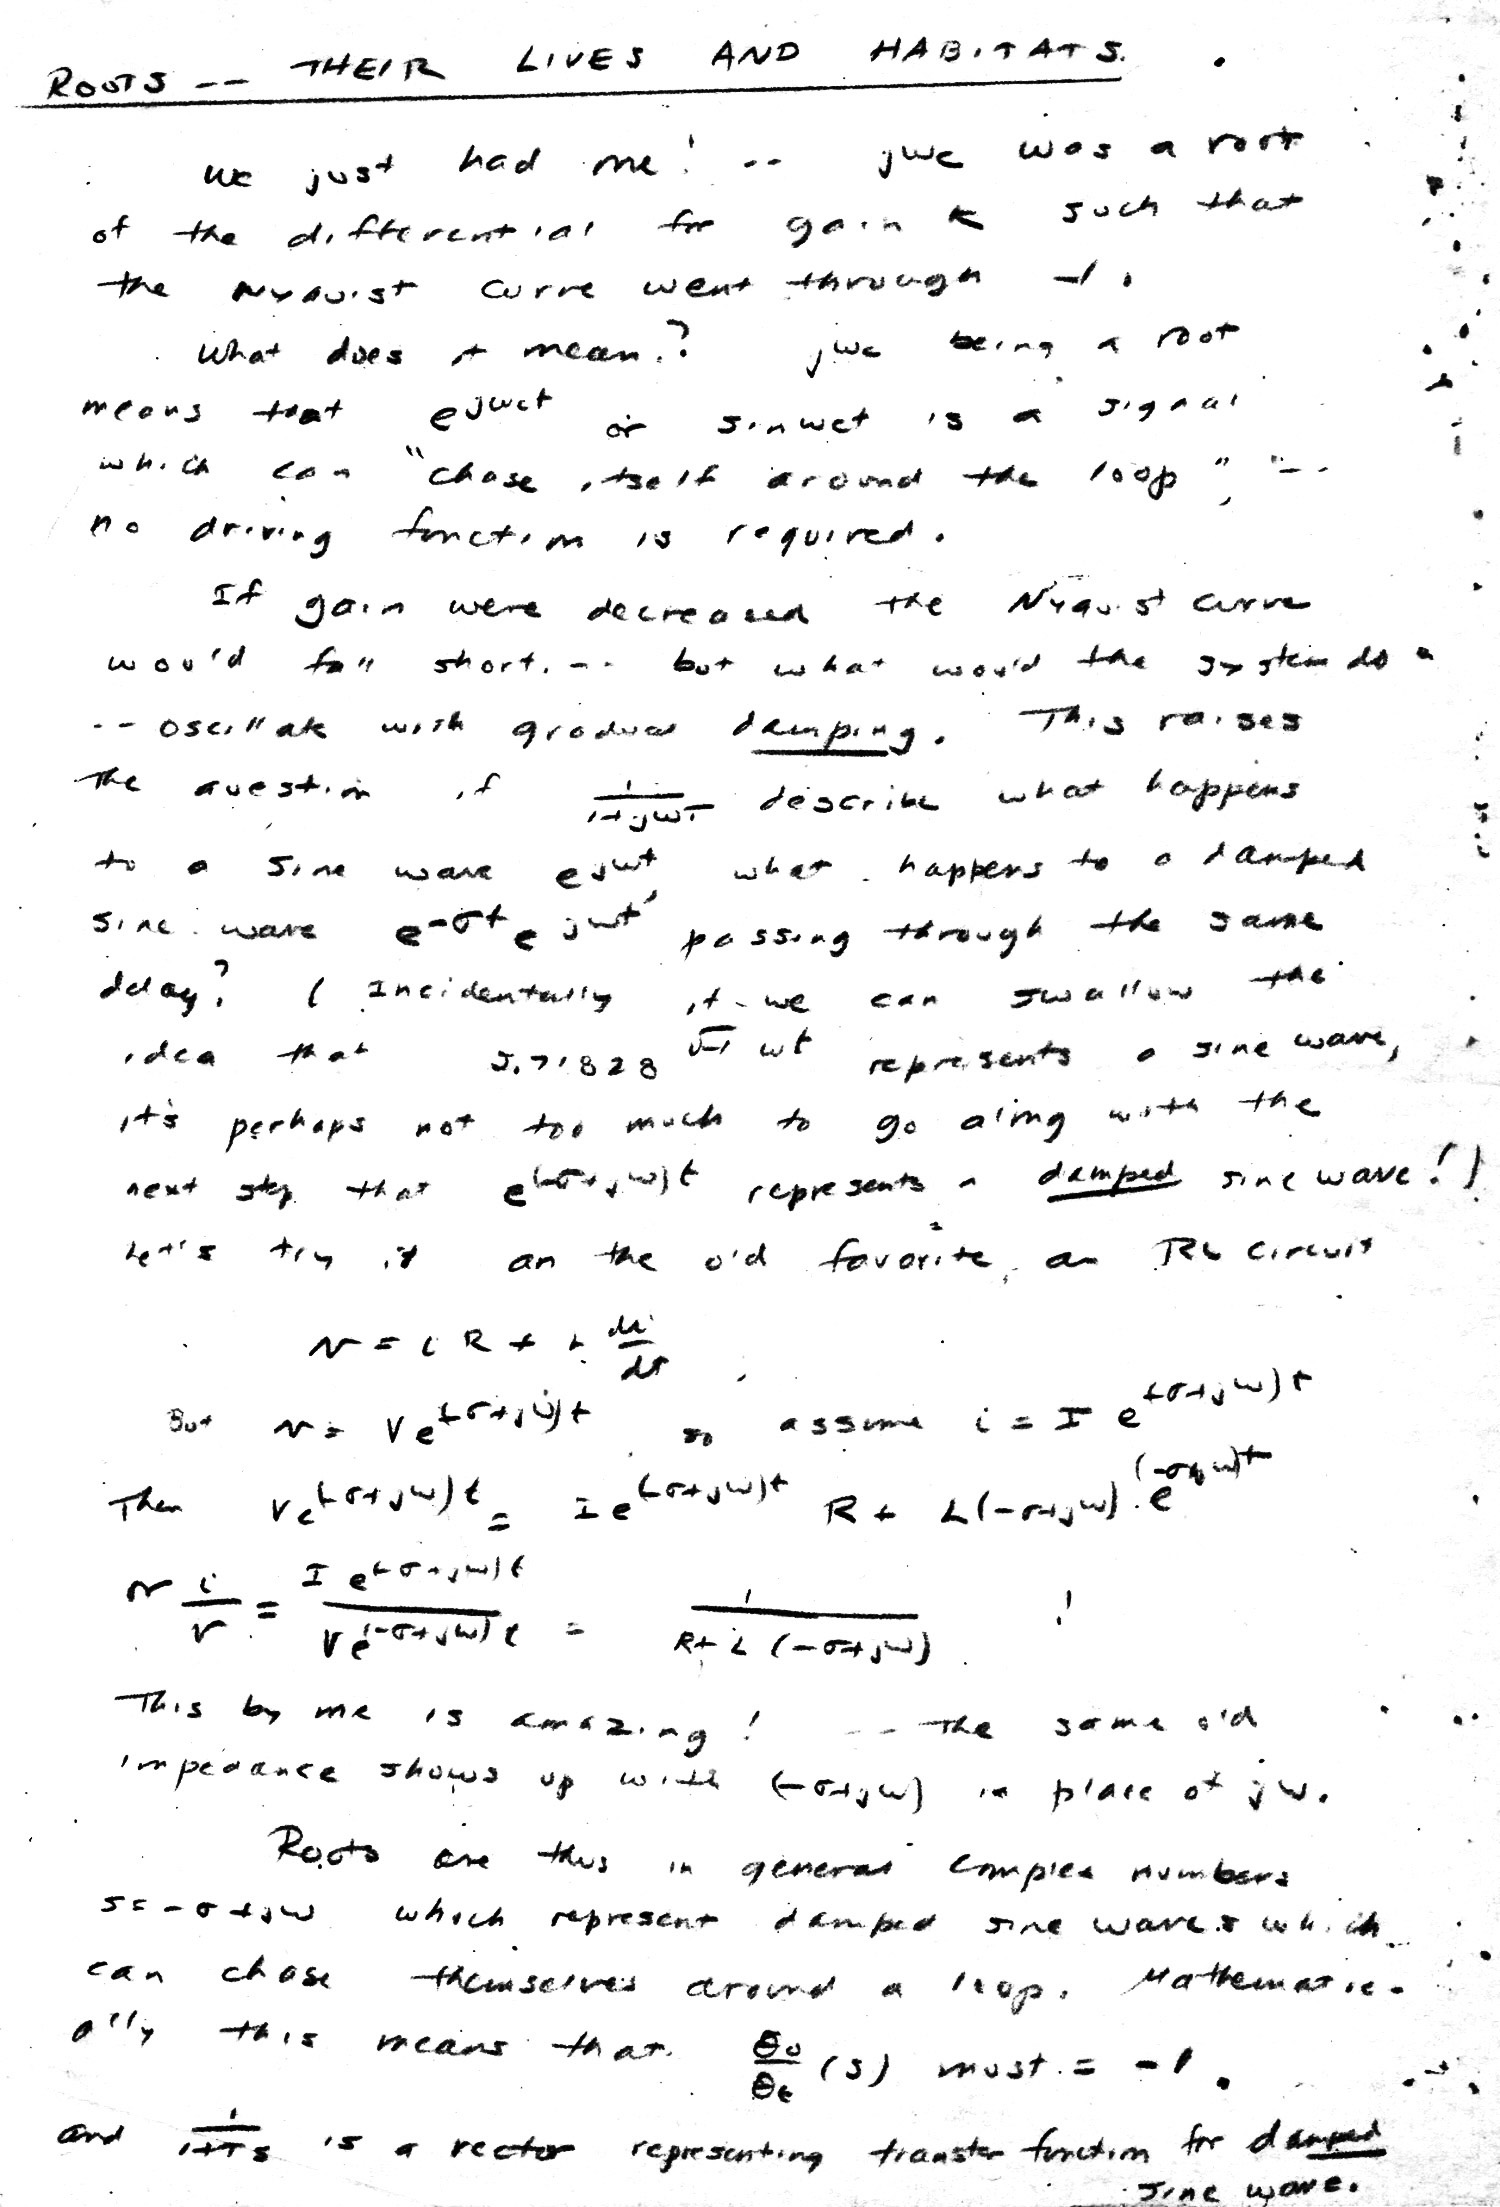 ROOTS -- THEIR LIVES AND HABITATS.
We just had me! -- jωc was a root
of the differential for gain K such that
the Nyquist curve went through -1.
What does it mean? jωc being a root
means that e^jωct or sinωct is a signal
which can "chase itself around the loop", --
no driving function is required.
If gain were decreased the Nyquist curve
would fall short. -- but what would the system do
-- oscillate with gradual damping. This raises
the question if 1/(1+jωT) describe what happens
to a sine wave e^jωt, what happens to a damped
sine wave e^-σt e^jωt passing through the same
delay? (Incidentally if we can swallow the
idea that 2.71828^√-1 ωt represents a sine wave,
it's perhaps not too much to go along with the
next step that e^(-σ+jω)t represents a damped sine wave!)
Let's try it on the old favorite, an RL circuit
v = iR + L di/dt
But v = Ve^(-σ+jω)t so assume i = I e^(-σ+jω)t
Then Ve^(-σ+jω)t = Ie^(-σ+jω)t R + L(-σ+jω).e^(-σ+jω)t
or i/v = I e^(-σ+jω)t / Ve^(-σ+jω)t = 1/(R+L(-σ+jω)) !
This by me is amazing! -- The same old
impedance shows up with (-σ+jω) in place of jω.
Roots are thus in general complex numbers
s=-σ+jω which represent damped sine waves which
can chase themselves around a loop. Mathematic-
ally this means that θo/θε (s) must = -1.
and 1/(1+Ts) is a vector representing transfer function for damped
sine wave.